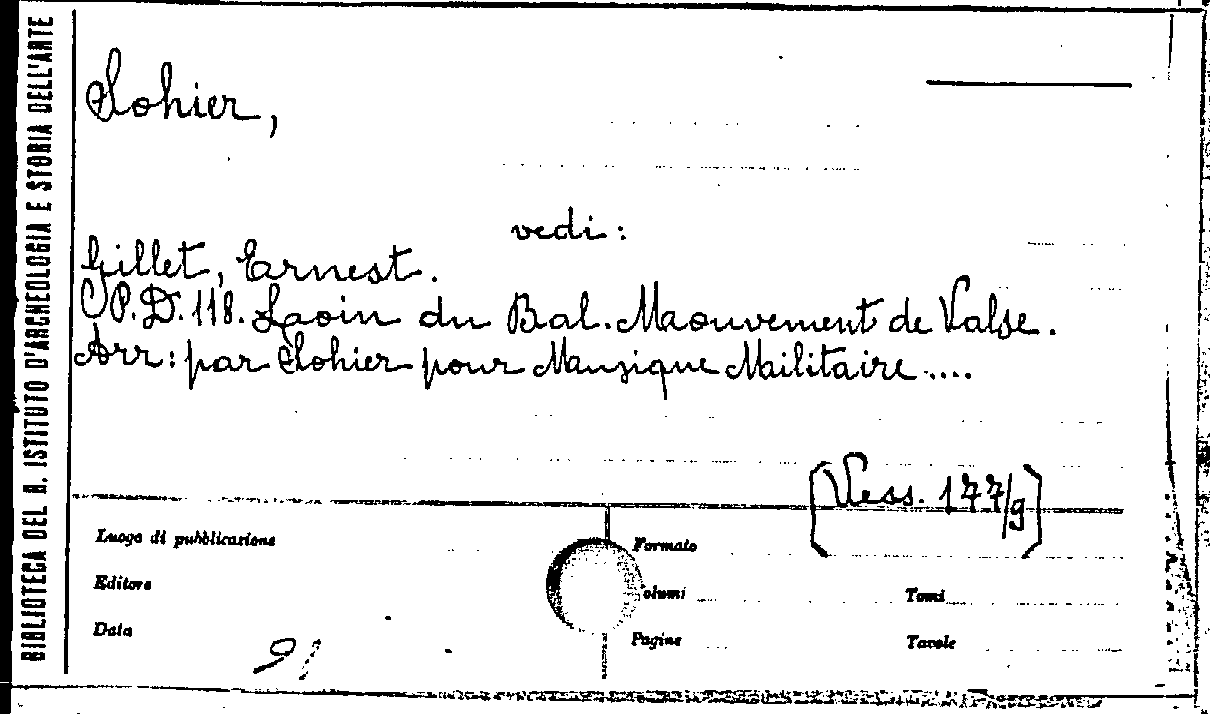 BIBLIOTECA DEL R. ISTITUTO D'ARCHEOLOGIA E STORIA DELL'ARTE
Sohier,
vedi:
Gillet, Ernest.
P.D. 118. Laoin du Bal. Maouvement de Valse.
Arr: par Sohier pour Musique Militaire....
[Vess. 177/g]
Luogo di pubblicazione
Formato
Editore
olumi
Tomi
Data
Pagine
Tavole
91